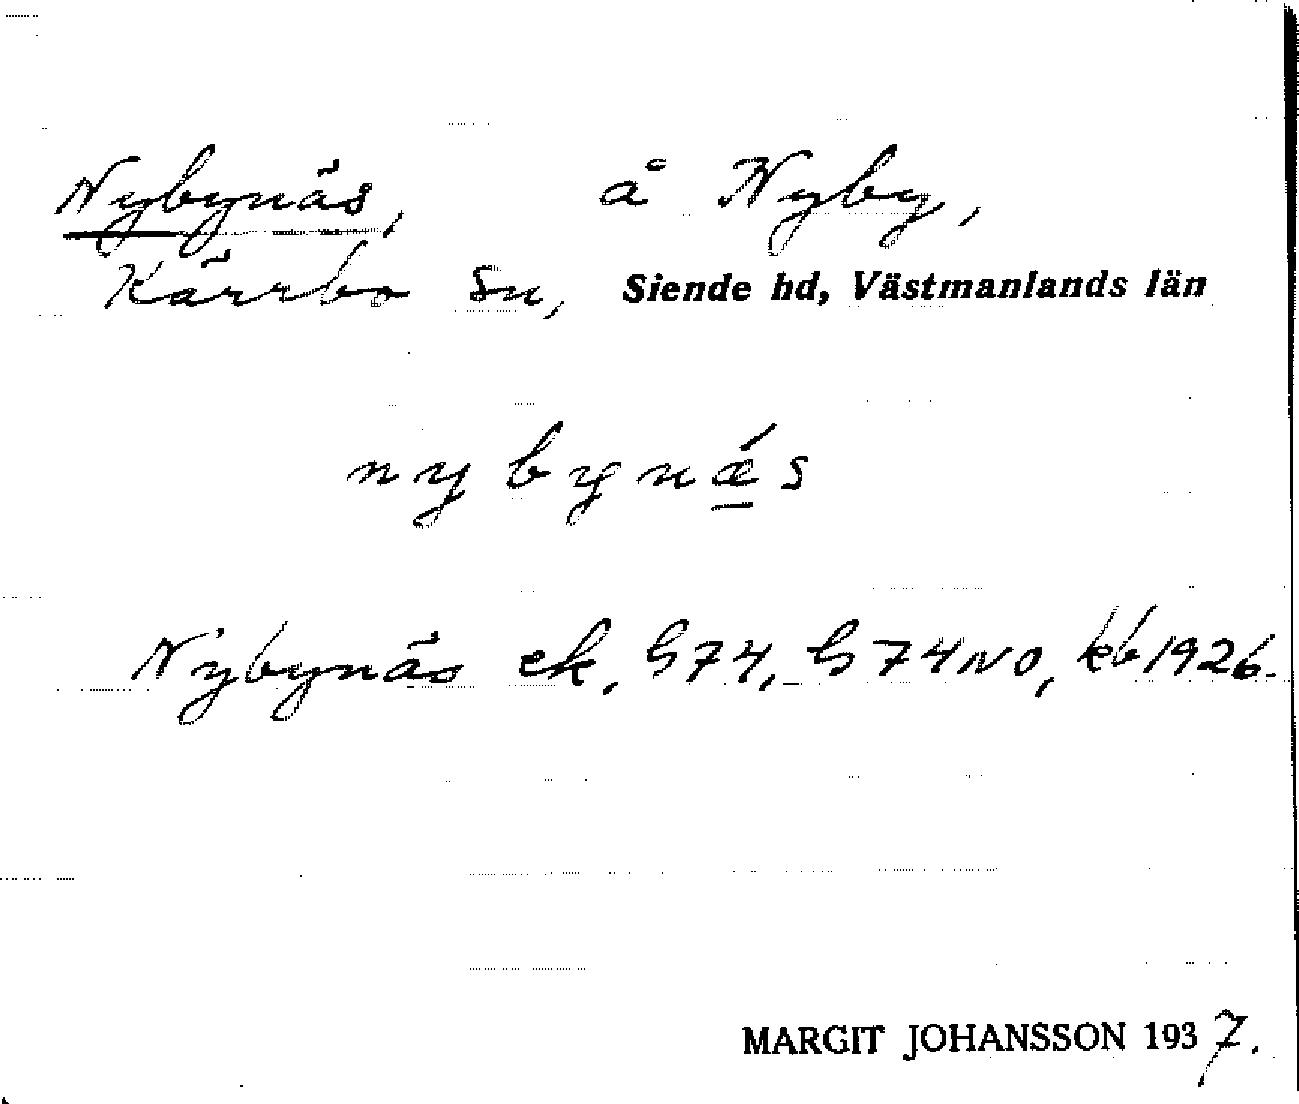 Nybynäs, å Nyby,
Kärrbo sn, Siende hd, Västmanlands län
nybynǽs
Nybynäs ek, G74, G74NO, kb 1926.
MARGIT JOHANSSON 1937.